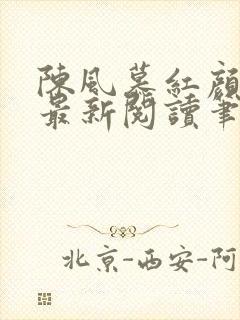 陳風慕紅顏
最新閱讀筆
北京-西安-阿